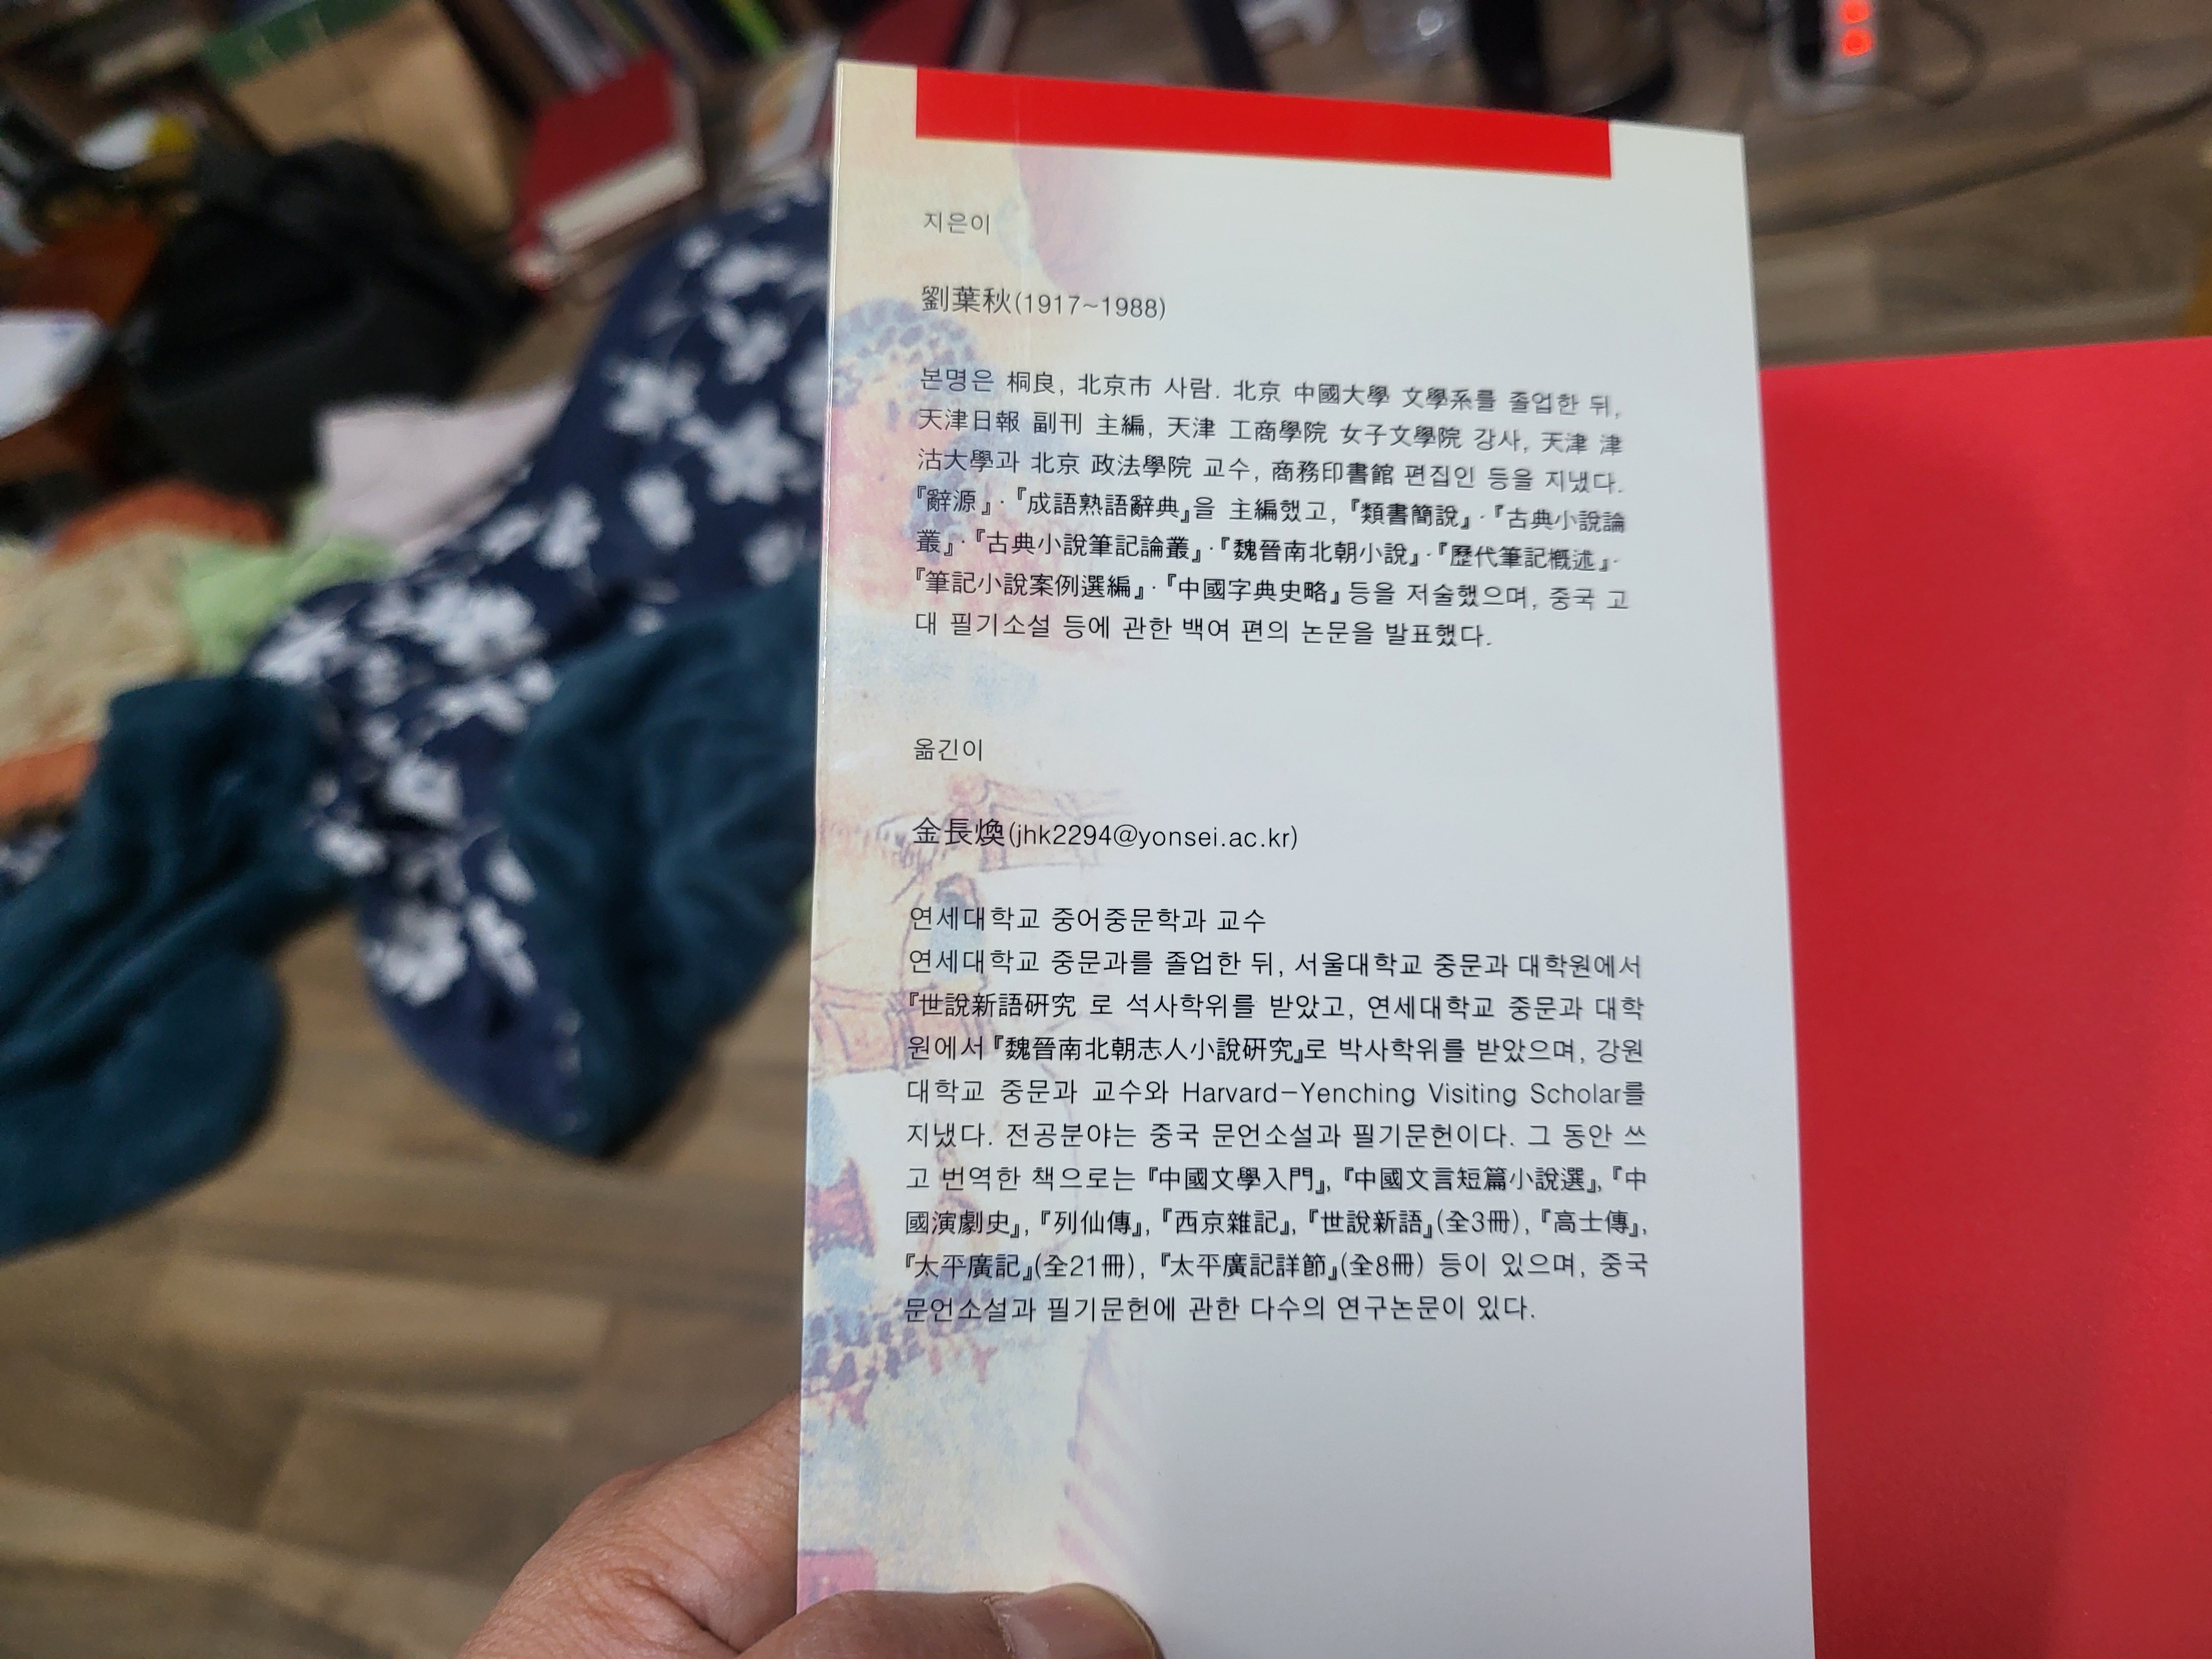 지은이
劉葉秋(1917~1988)
본명은 桐良, 北京市 사람. 北京 中國大學 文學系를 졸업한 뒤,
天津日報 副刊 主編, 天津 工商學院 女子文學院 강사, 天津 津
沽大學과 北京 政法學院 교수, 商務印書館 편집인 등을 지냈다.
『辭源』·『成語熟語辭典』을 主編했고, 『類書簡說』·『古典小說論
叢』·『古典小說筆記論叢』·『魏晉南北朝小說』·『歷代筆記槪述』·
『筆記小說案例選編』·『中國字典史略』 등을 저술했으며, 중국 고
대 필기소설 등에 관한 백여 편의 논문을 발표했다.
옮긴이
金長煥(jhk2294@yonsei.ac.kr)
연세대학교 중어중문학과 교수
연세대학교 중문과를 졸업한 뒤, 서울대학교 중문과 대학원에서
『世說新語硏究 로 석사학위를 받았고, 연세대학교 중문과 대학
원에서 『魏晉南北朝志人小說硏究』로 박사학위를 받았으며, 강원
대학교 중문과 교수와 Harvard-Yenching Visiting Scholar를
지냈다. 전공분야는 중국 문언소설과 필기문헌이다. 그 동안 쓰
고 번역한 책으로는 『中國文學入門』, 『中國文言短篇小說選』, 『中
國演劇史』, 『列仙傳』, 『西京雜記』, 『世說新語』(全3冊), 『高士傳』,
『太平廣記』(全21冊), 『太平廣記詳節』(全8冊) 등이 있으며, 중국
문언소설과 필기문헌에 관한 다수의 연구논문이 있다.